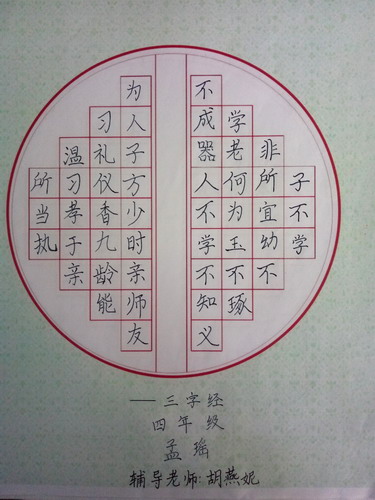 子不学
非所宜幼不
学老何为玉不琢
不成器人不学不知义
为人子方少时亲师友
习礼仪香九龄能
温习孝子亲
所当执
——三字经
四年级
孟瑶
辅导老师:胡燕妮